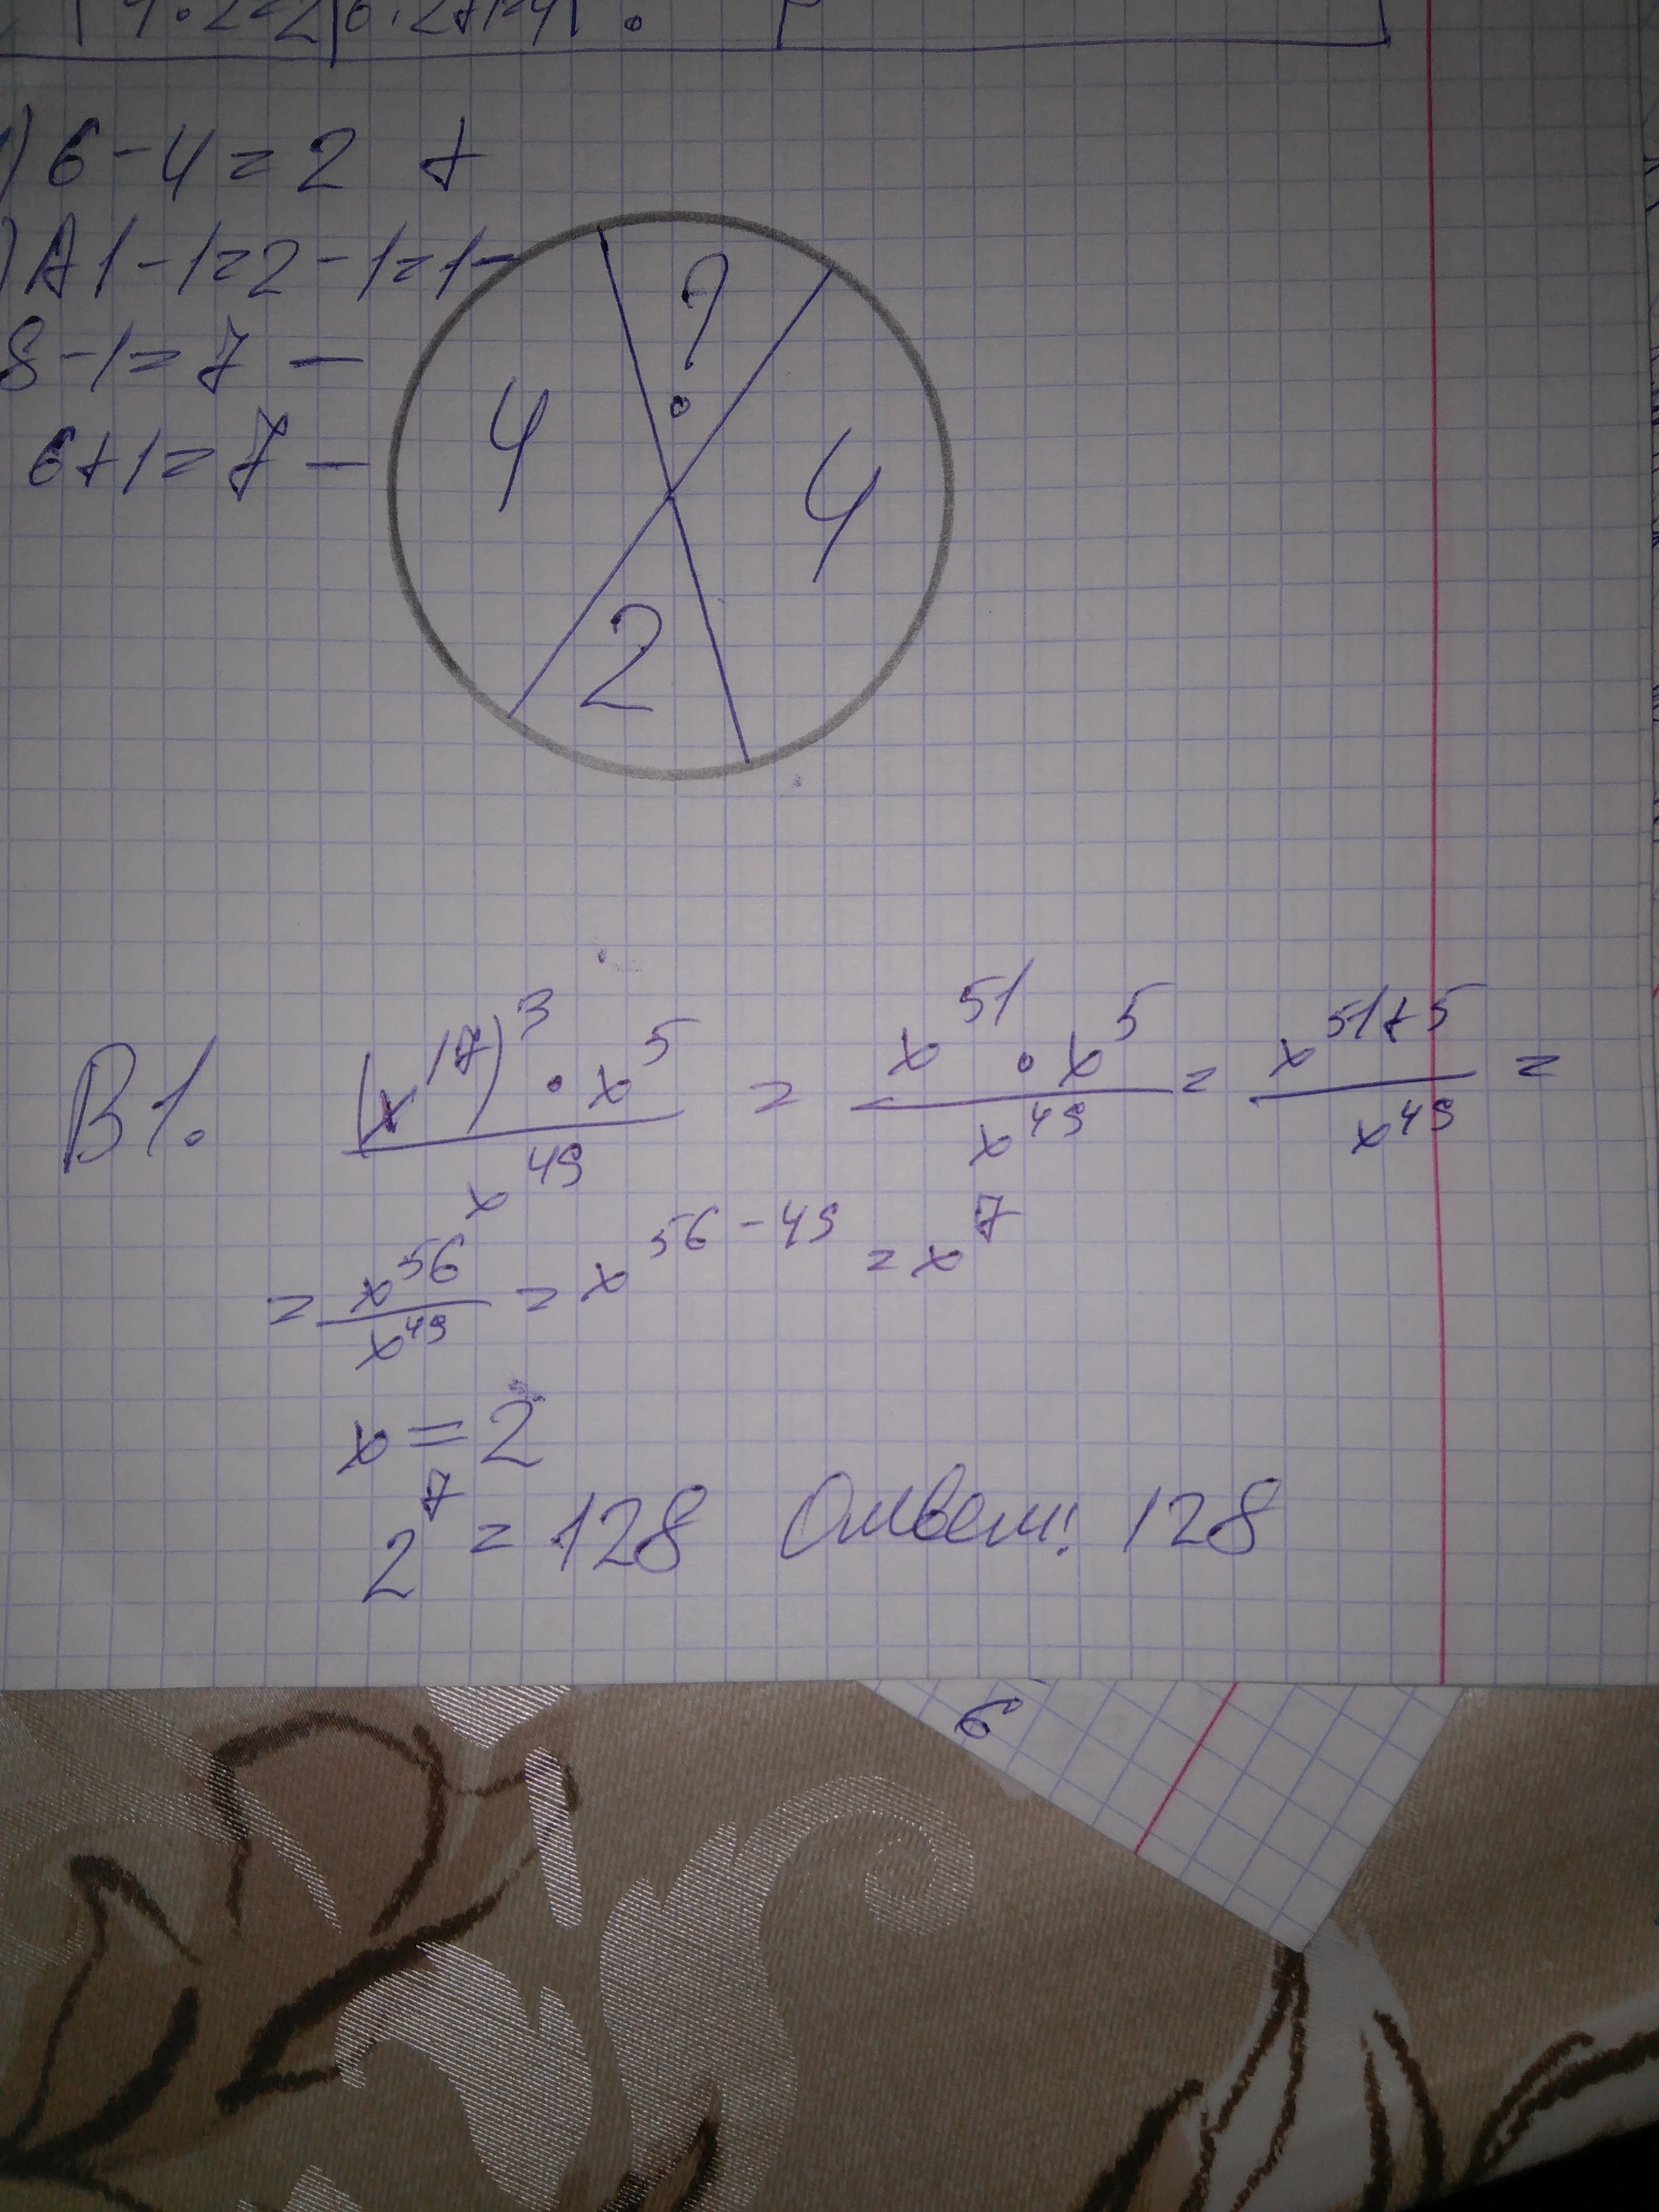 ) 6 - 4 = 2 +
) A1 - 1 = 2 - 1 = 1 -
8 - 1 = 7 -
6 + 1 = 7 -
?
4
4
2
B1. (x^17)^3 • x^5 / x^49 = x^51 • x^5 / x^49 = x^51+5 / x^49 =
= x^56 / x^49 = x^56-49 = x^7
x = 2
2^7 = 128 Ответ: 128
6